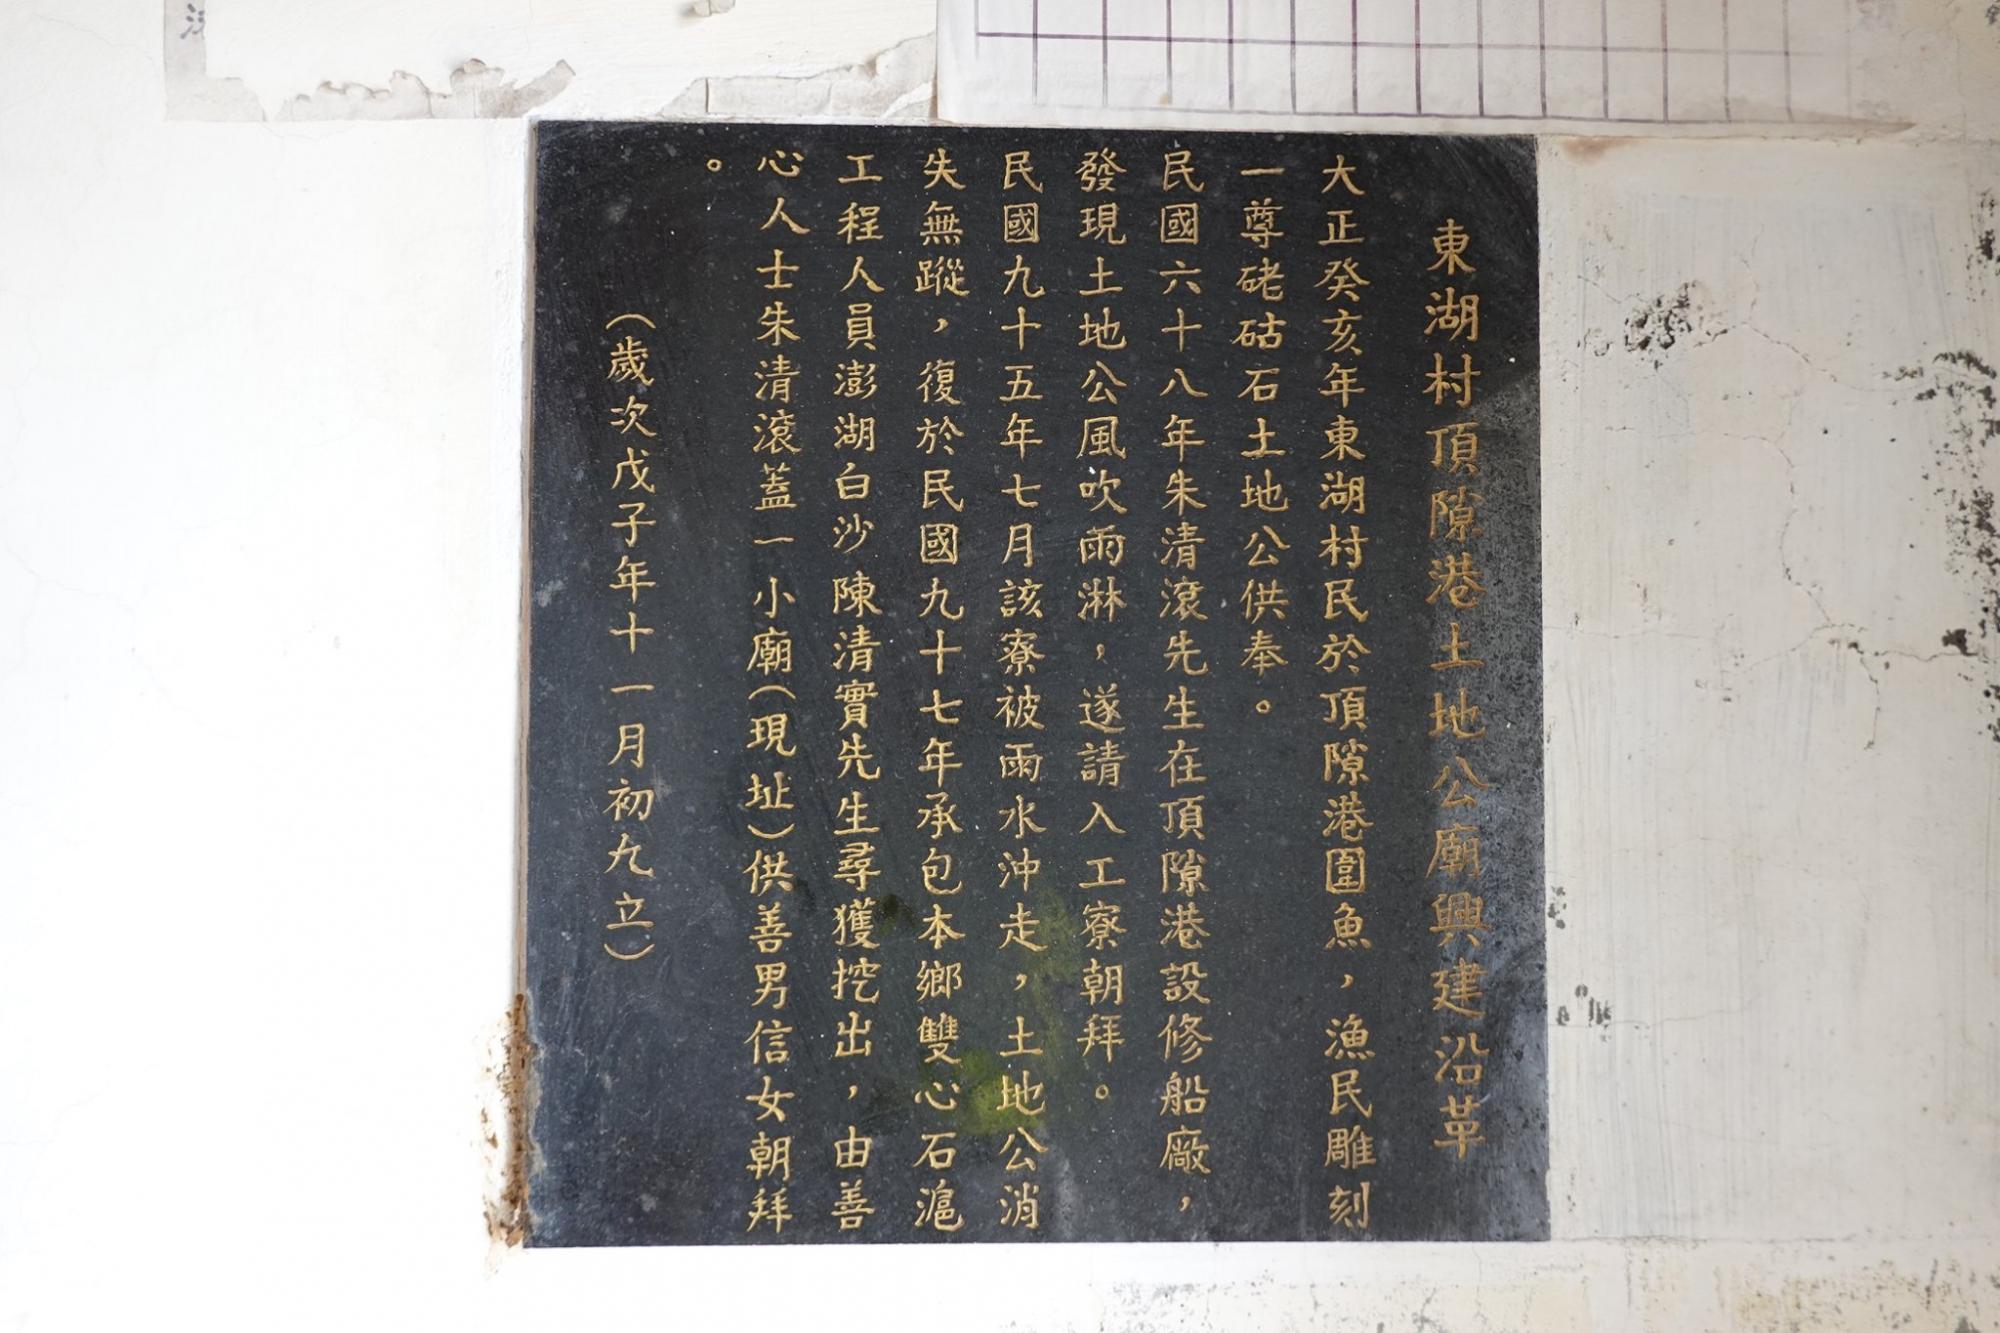 東湖村頂隙港土地公廟興建沿革
大正癸亥年東湖村民於頂隙港圍魚，漁民雕刻
一尊硓𥑮石土地公供奉。
民國六十八年朱清滾先生在頂隙港設修船廠，
發現土地公風吹雨淋，遂請入工寮朝拜。
民國九十五年七月該寮被雨水沖走，土地公消
失無蹤，復於民國九十七年承包本鄉雙心石滬
工程人員澎湖白沙陳清實先生尋獲挖出，由善
心人士朱清滾蓋一小廟（現址）供善男信女朝拜
。
（歲次戊子年十一月初九立）